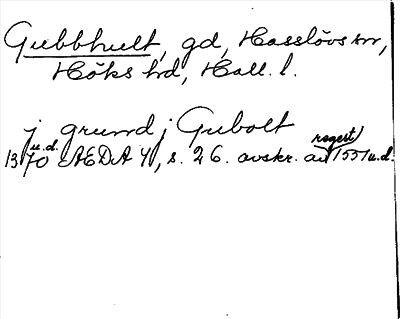 Gubbhult, gd, Hasslövs sn,
Höks hd, Hall. l.
j grund j Gubolt
1370 u.d. ÆDA 4, s. 26. avskr. av regest 1551 u.d.